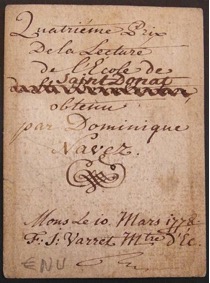 Quatriéme Prix
De la Lecture
de l'Ecole de
Saint Donat
obtenu
par Dominique
Navez.
Mons le 10. Mars 1778
F. J. Varret. Mtre d'Ec.
ENU